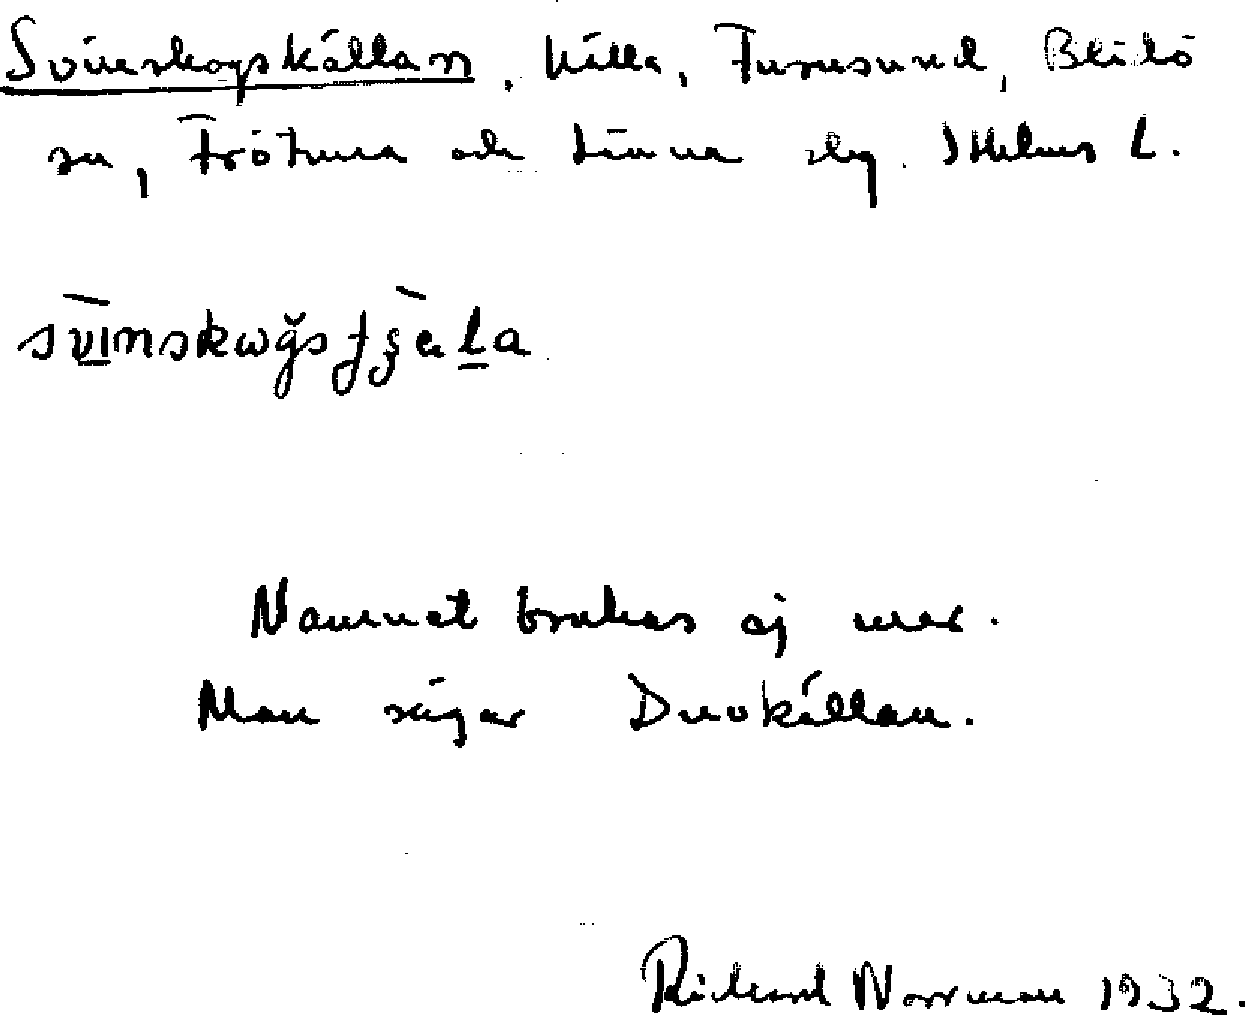 Svinskogskällan, källa, Furusund, Blidö
sn, Frötuna och Länna slg. Sthlms L.
Namnet brukas ej mer.
Man säger Duvkällan.
Richard Norrman 1932.